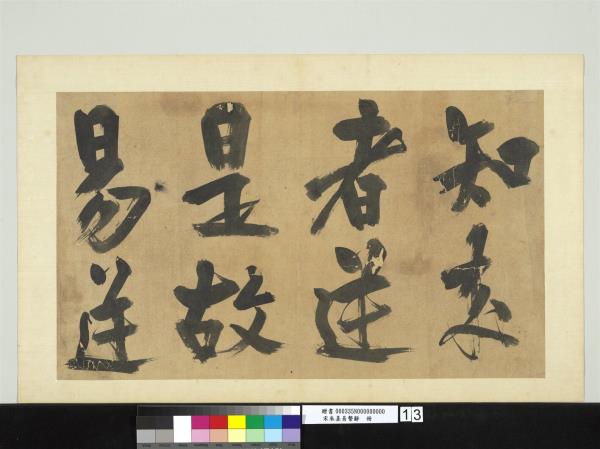 知来
者逆
是故
易逆
贈書 000335N000000000
宋朱熹易繫辭 冊
13